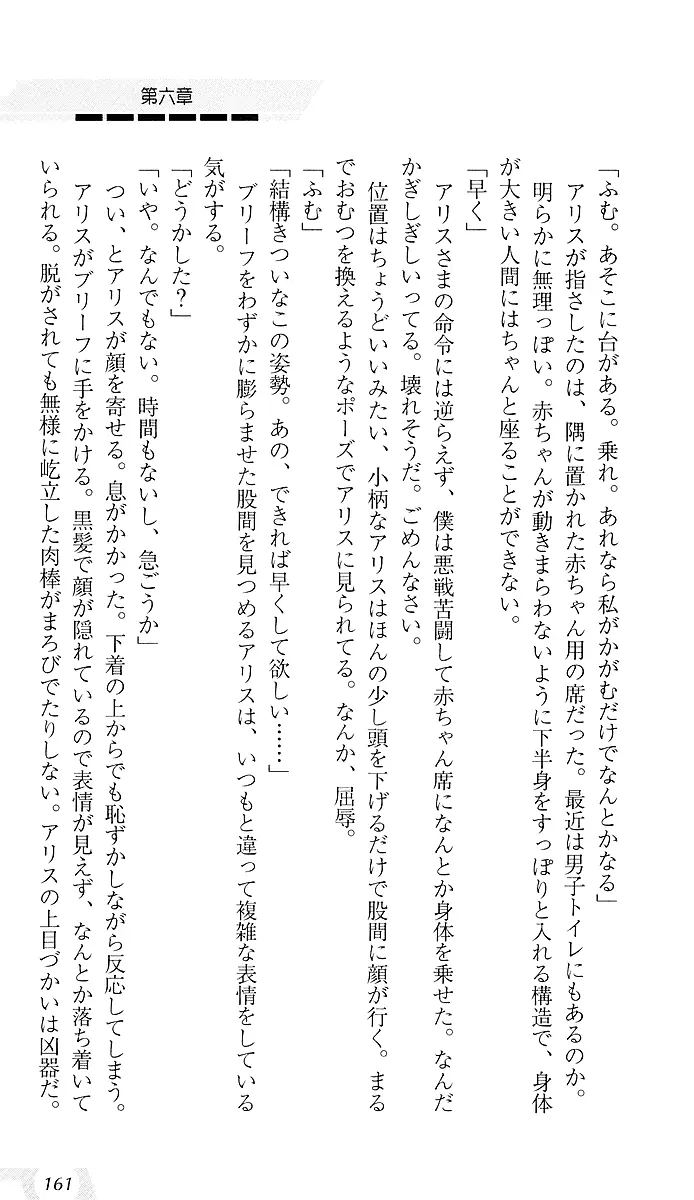 第六章
「ふむ。あそこに台がある。乗れ。あれなら私がかがむだけでなんとかなる」
アリスが指さしたのは、隅に置かれた赤ちゃん用の席だった。最近は男子トイレにもあるのか。
明らかに無理っぽい。赤ちゃんが動きまらわないように下半身をすっぽりと入れる構造で、身体
が大きい人間にはちゃんと座ることができない。
「早く」
アリスさまの命令には逆らえず、僕は悪戦苦闘して赤ちゃん席になんとか身体を乗せた。なんだ
かぎしぎしいってる。壊れそうだ。ごめんなさい。
位置はちょうどいいみたい、小柄なアリスはほんの少し頭を下げるだけで股間に顔が行く。まる
でおむつを換えるようなポーズでアリスに見られてる。なんか、屈辱。
「ふむ」
「結構きついなこの姿勢。あの、できれば早くして欲しい……」
ブリーフをわずかに膨らませた股間を見つめるアリスは、いつもと違って複雑な表情をしている
気がする。
「どうかした？」
「いや。なんでもない。時間もないし、急ごうか」
つい、とアリスが顔を寄せる。息がかかった。下着の上からでも恥ずかしながら反応してしまう。
アリスがブリーフに手をかける。黒髪で顔が隠れているので表情が見えず、なんとか落ち着いて
いられる。脱がされても無様に屹立した肉棒がまろびでたりしない。アリスの上目づかいは凶器だ。
161